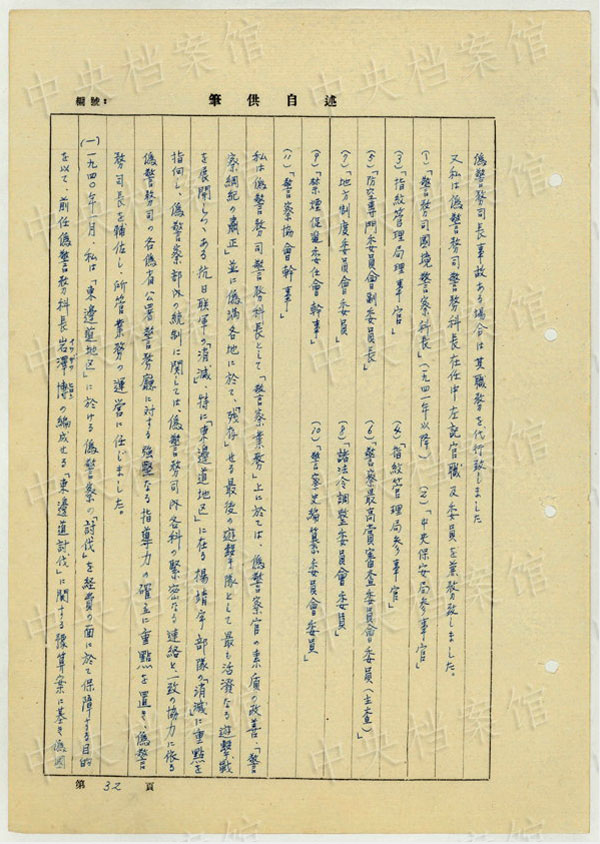 編號：
筆供自述
偽警務司長事故ある場合は其職務を代行致しました
又私は偽警務司警務科長在任中左記官職及委員を兼務致しました。
(1)「警務司國境警察科長」(一九四一年以降) (2)「中央保安局参事官」
(3)「指紋管理局理事官」 (4)「指紋管理局参事官」
(5)「防空専門委員會副委員長」 (6)「警察最高賞審査委員會委員(主査)」
(7)「地方制度委員會委員」 (8)「諸法令調整委員會委員」
(9)「禁煙促進委任會幹事」 (10)「警察史編纂委員會委員」
(11)「警察協會幹事」
私は偽警務司警務科長として「警察業務」上に於ては、偽警察官の素質の改善、「警
察綱紀の粛正」並に偽満各地に於て、「残存」せる最後の遊撃隊として最も活潑なる遊撃戰
を展開しつゝある抗日联軍の「消滅」特に「東邊道地区」に在る楊靖宇部隊の「消滅」に重點を
指向し、偽警察部隊の統制に関しては、偽警務司内各科の緊密なる連絡と一致の協力に依る
偽警務司の各偽省公署警務廳に対する強豊なる指導力の確立に重點を置き、偽警
務司長を補佐し、所管業務の運営に任じました。
(一)一九四〇年一月、私は「東邊道地区」に於ける偽警察の「討伐」を経費の面に於て保障する目的
を以て、前任偽警務科長岩澤博の編成せる「東邊道討伐」に関する豫算案に基き偽國
第 32 頁
中央档案馆